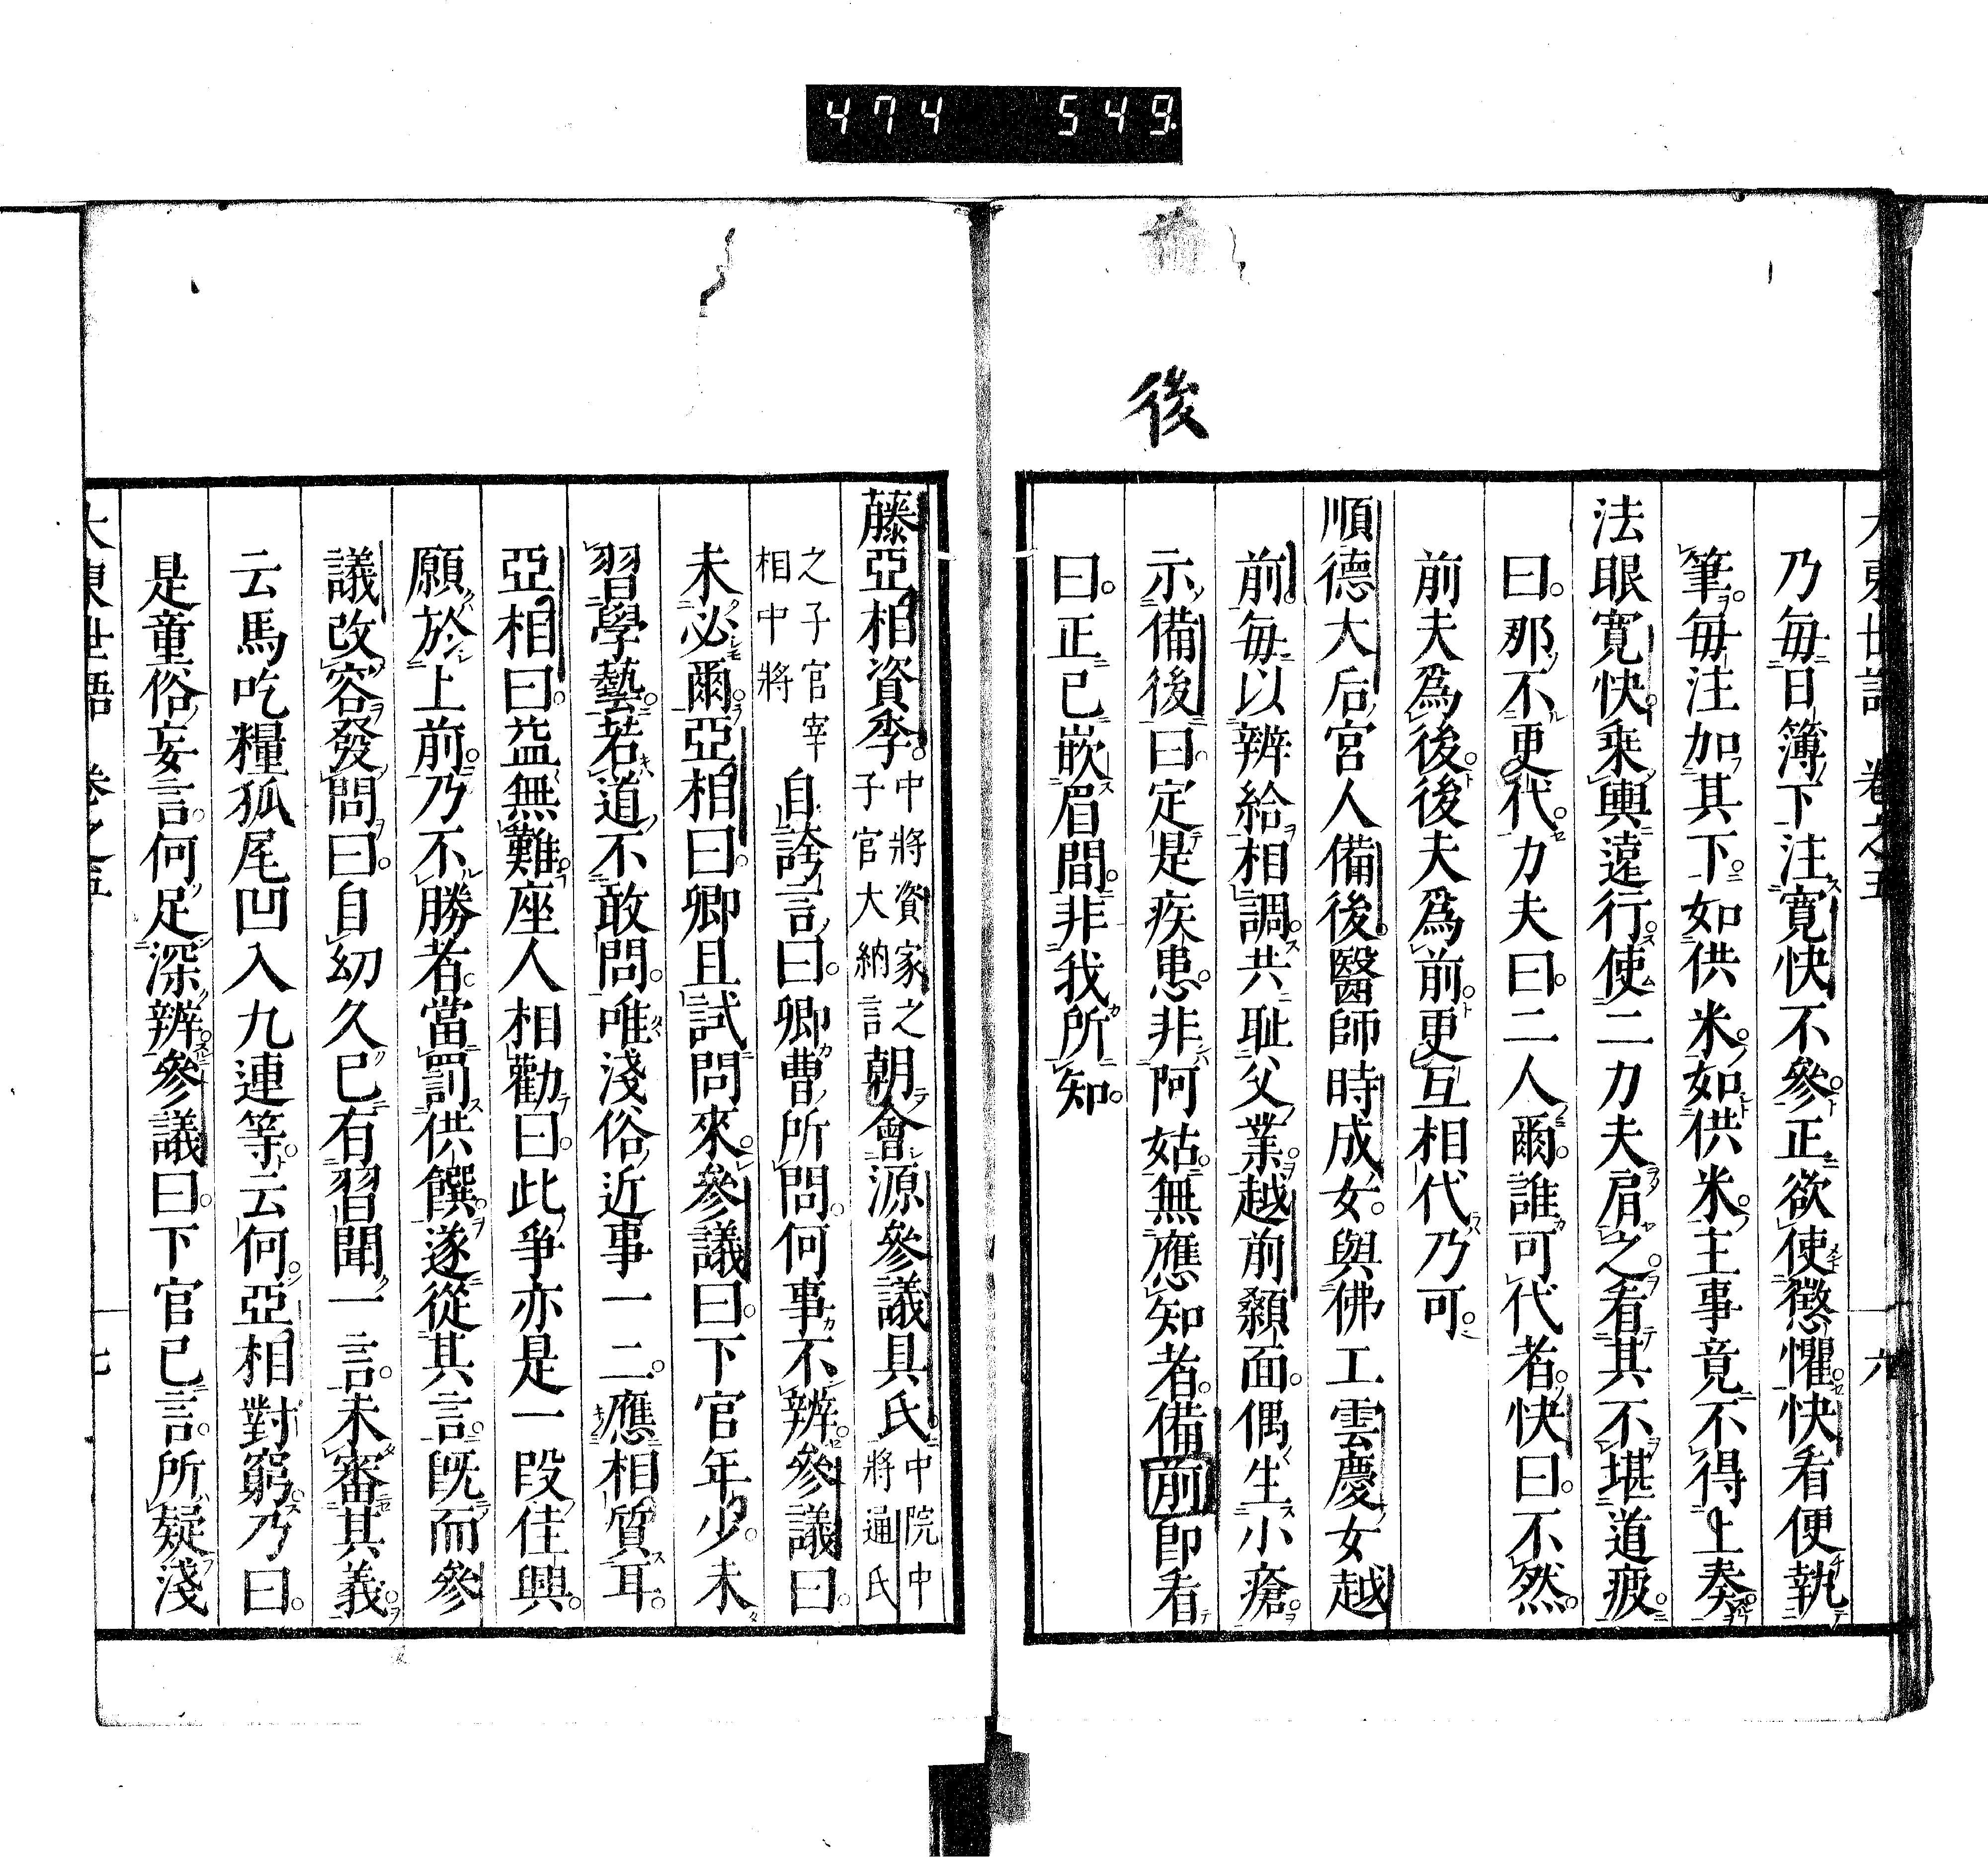 474 549
後
大東世語 卷之五 六
乃每日簿下注寬快不參正欲使懲懼快看便執
筆每注加其下如供米如供米主事竟不得上奏
法眼寬快乘輿遠行使二力夫肩之看其不堪道疲
曰那不更代力夫曰二人爾誰可代者快曰不然
前夫爲後後夫爲前更互相代乃可
順德大后宮人備後醫師時成女與佛工雲慶女越
前每以辨給相調共耻父業越前顙面偶生小瘡
示備後曰定是疾患非阿姑無應知者備前即看
曰正已嵌眉間非我所知
藤亞相資季中將資家之子官大納言朝會源參議具氏中院中將通氏
之子官宰相中將自誇言曰卿曹所問何事不辨參議曰
未必爾亞相曰卿且試問來參議曰下官年少未
習學藝若道不敢問唯淺俗近事一二應相質耳
亞相曰益無難座人相勸曰此爭亦是一段佳興
願於上前乃不勝者當罰供饌遂從其言既而參
議改容發問曰自幼久已有習聞一言未審其義
云馬吃糧狐尾凹入九連等云何亞相對窮乃曰
是童俗妄言何足深辨參議曰下官已言所疑淺
大東世語 卷之五 七